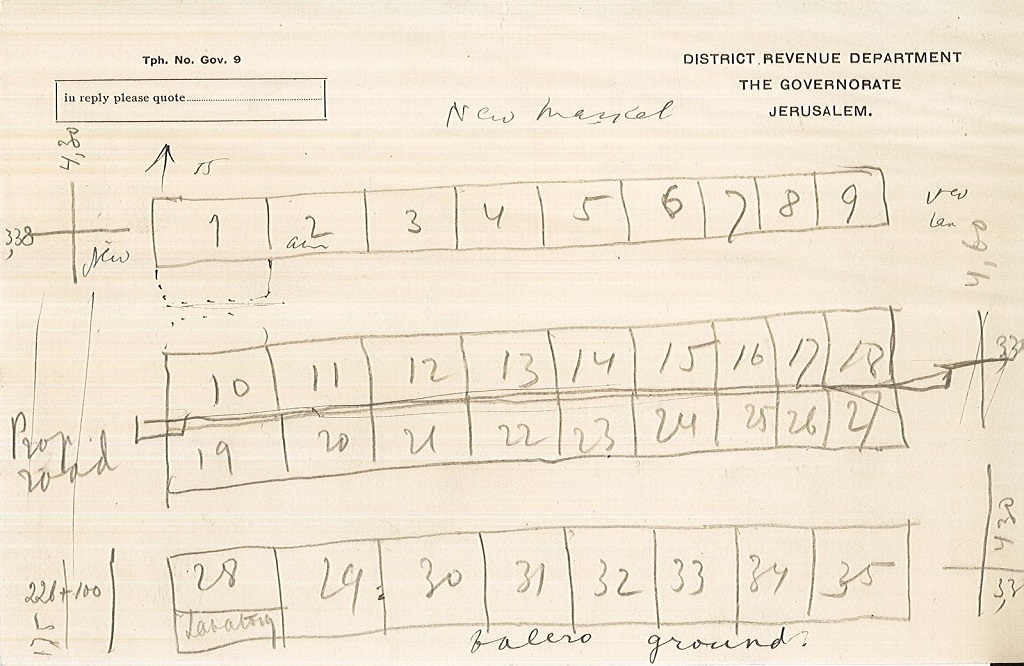 Tph. No. Gov. 9
in reply please quote
DISTRICT REVENUE DEPARTMENT
THE GOVERNORATE
JERUSALEM.
New Market
4,30
15
1 2 3 4 5 6 7 8 9
,338
New
4,30
10 11 12 13 14 15 16 17 18
338
19 20 21 22 23 24 25 26 27
Prop
road
430
28 29 30 31 32 33 34 35
226+100
175
Lavatory
ground.